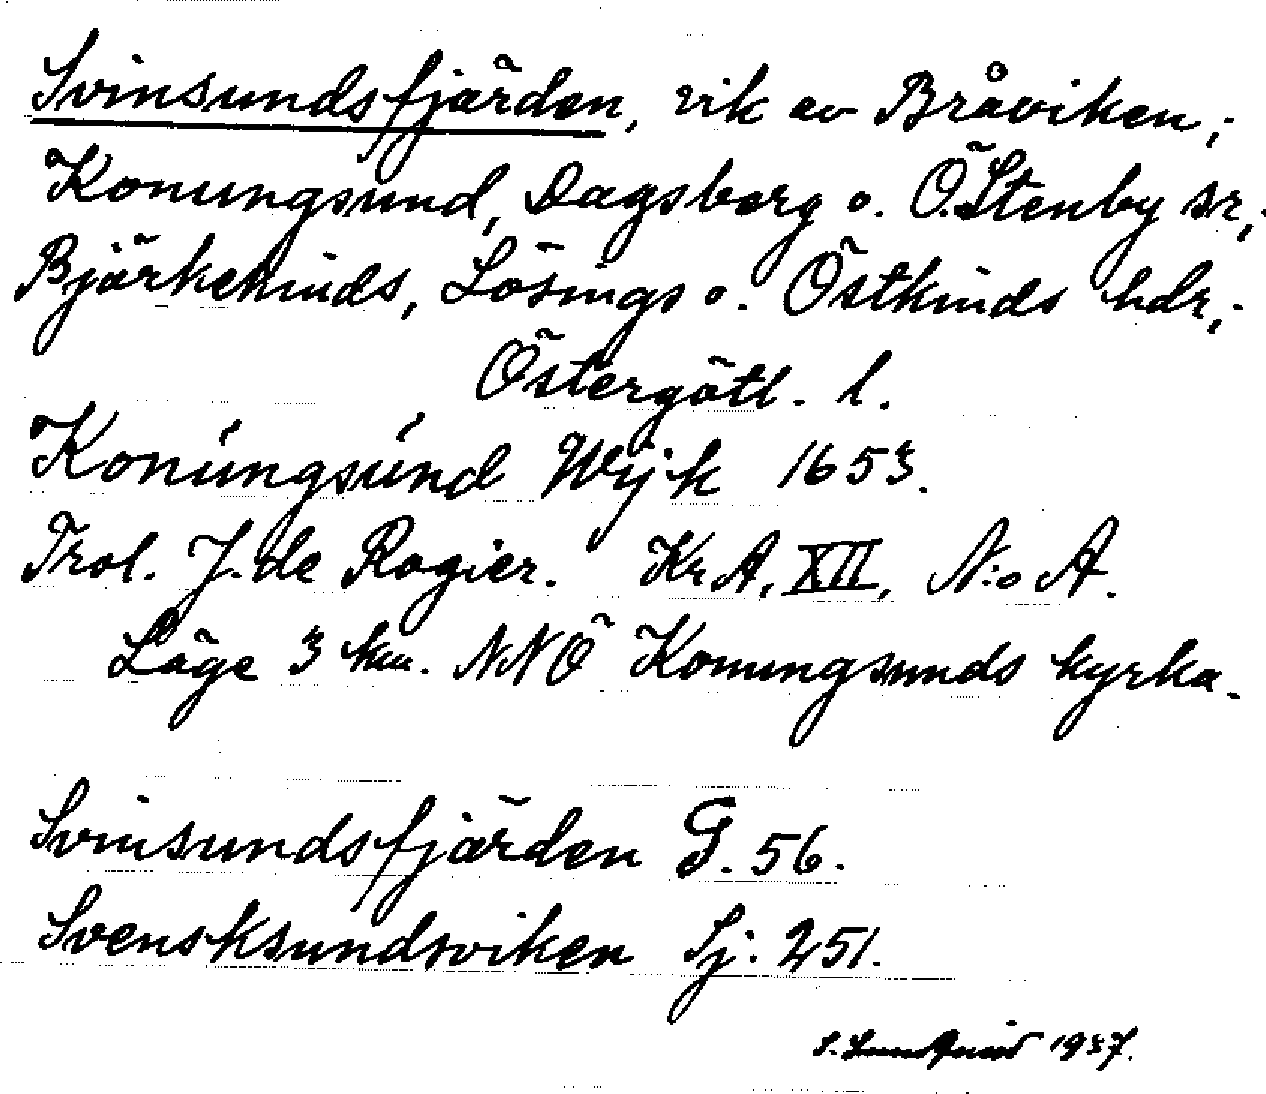 Svinsundsfjärden, vik av Bråviken,
Konungsund, Dagsberg o. Ö. Stenby sr,
Bjärkekinds, Lösings o. Östkinds hdr,
Östergötl. l.
Konúngsúnd Wijk 1653.
Trol. J. de Rogier. Kr A, XII, N:o A.
Läge 3 km. NNÖ Konungsunds kyrka.
Svinsundsfjärden G. 56.
Svensksundsviken Sj. 251.
S. Lundqvist 1937.